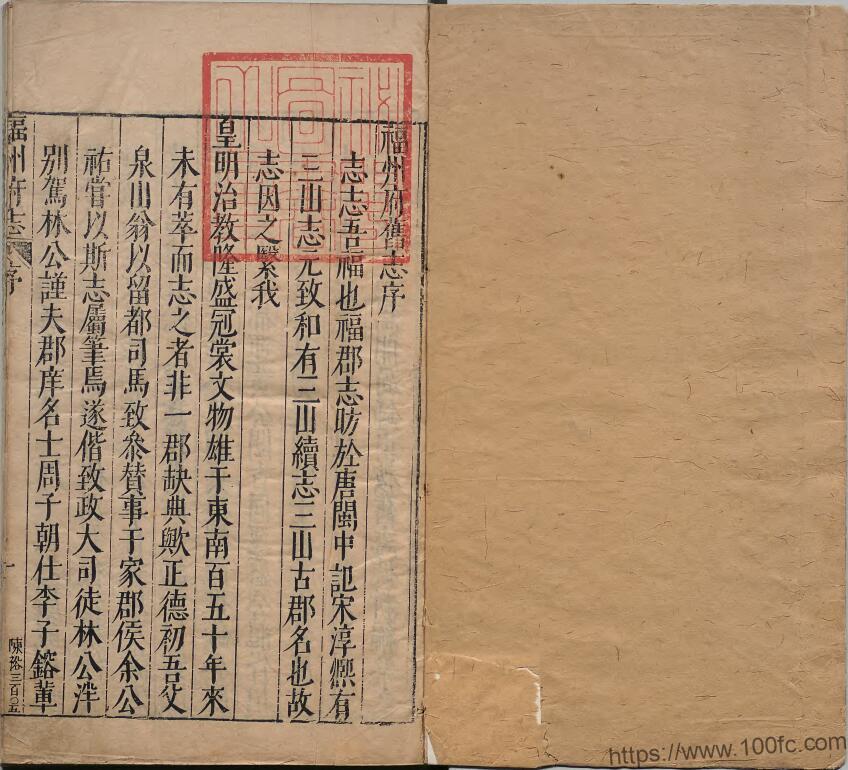 福州府舊志序
志志吾福也福郡志昉於唐閩中記宋淳熈有
三山志元致和有三山續志三山古郡名也故
志因之繄我
皇明治教隆盛冠裳文物雄于東南百五十年來
未有萃而志之者非一郡缺典歟正德初吾父
泉山翁以留都司馬致叅賛事于家郡侯余公
祐嘗以斯志屬筆焉遂偕致政大司徒林公泮
別駕林公謹夫郡庠名士周子朝仕李子鎔軰
福州府志
序
一
陳裕三百〇五
https://www.100fc.com